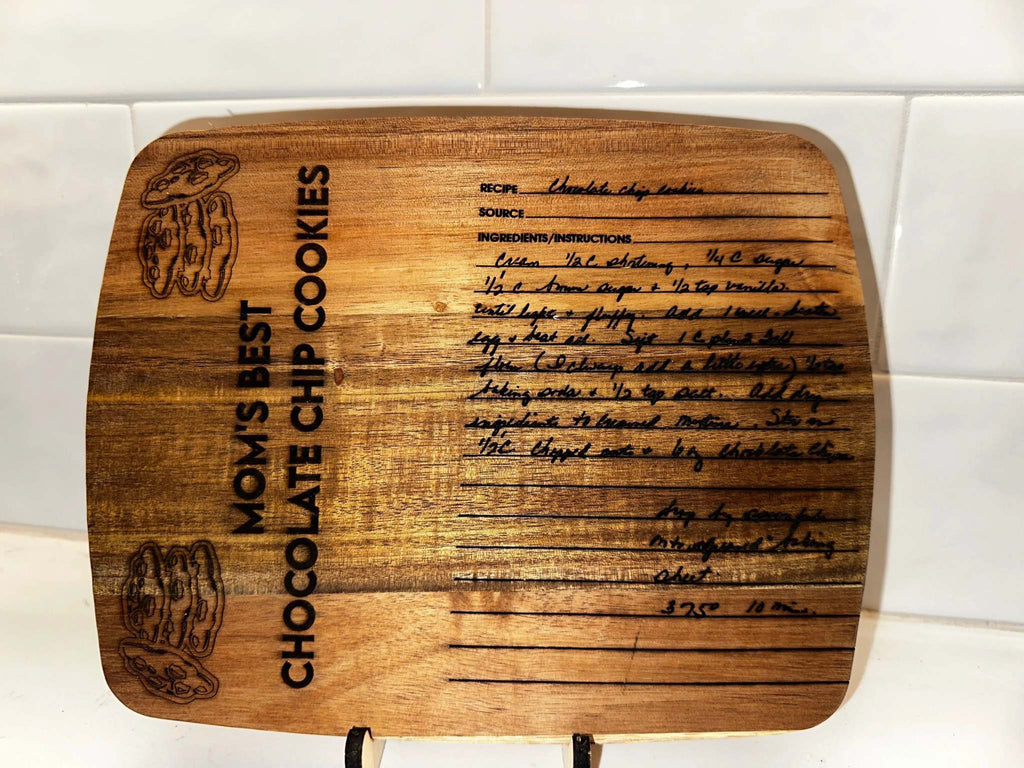 MOM'S BEST
CHOCOLATE CHIP COOKIES
RECIPE Chocolate chip cookies
SOURCE
INGREDIENTS/INSTRUCTIONS
Cream 1/2 C. shortening, 1/4 C sugar
1/2 C brown sugar + 1/2 tsp vanilla.
until light + fluffy. Add 1 well beaten
egg + beat Sift 1 C plus 2 Tbl
flour (I always add a little extra) 1/2 tsp
baking soda + 1/2 tsp salt. Add dry
ingredients to creamed mixture. Stir in
1/2 C chopped nuts + 6 oz chocolate chips
Drop by
into baking
sheet
375° 10 min.